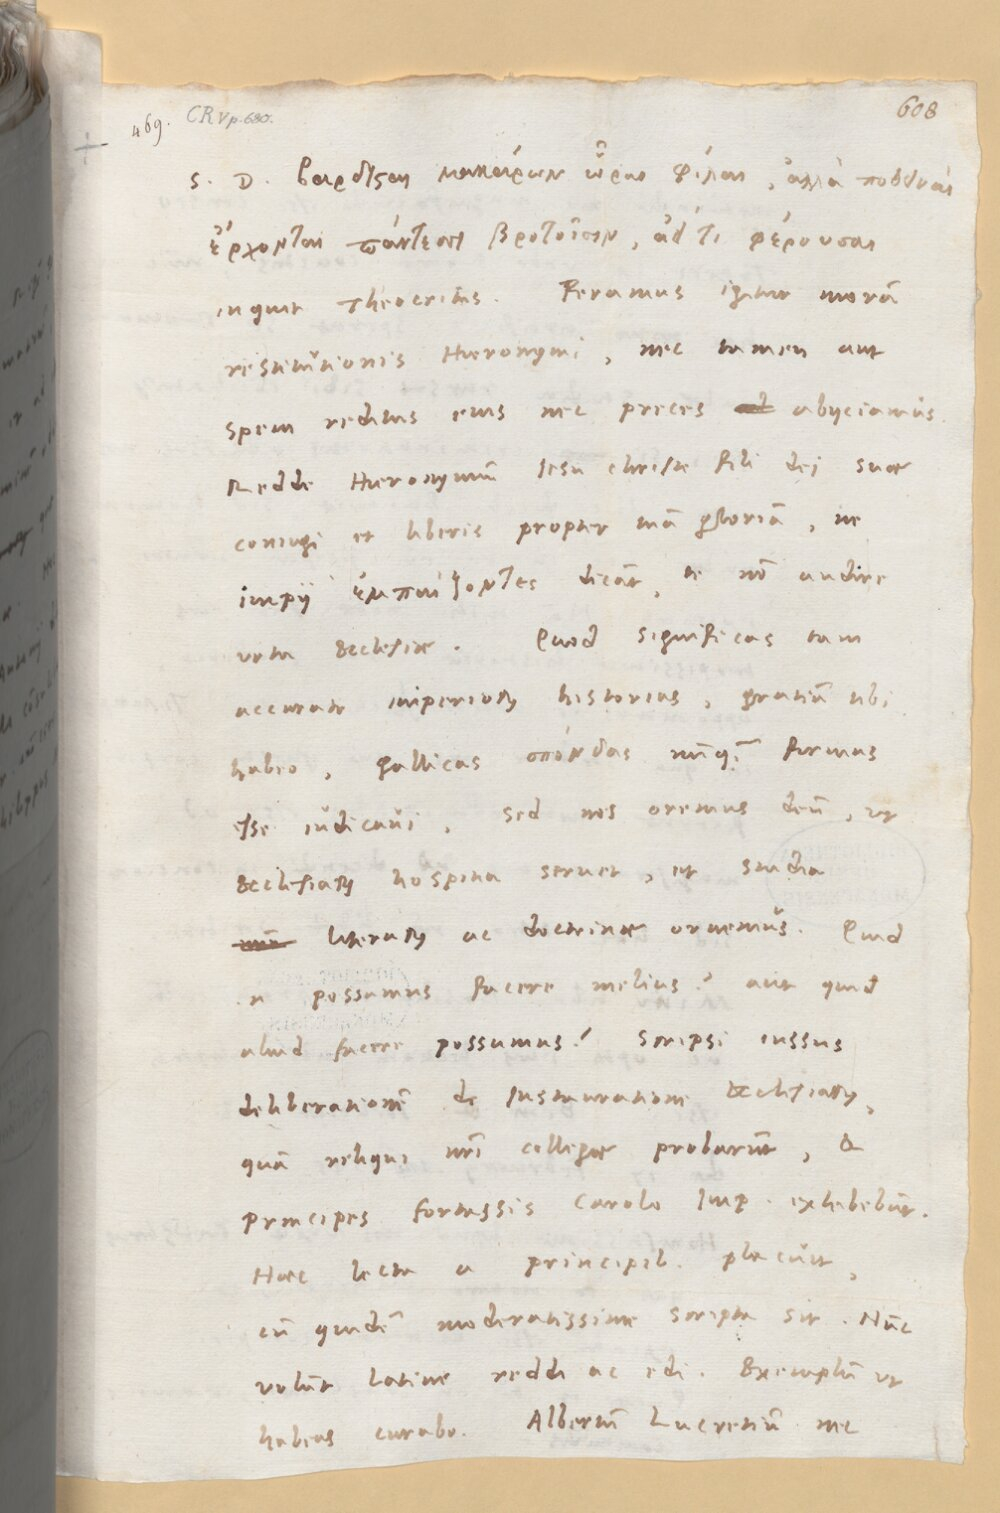 608
469. CR V p. 680.
S. D. βάρδισται μακάρων ὧραι φίλαι, ἀλλὰ ποθειναὶ
ἔρχονται πάντεσσι βροτοῖσιν, ἀεί τι φέρουσαι
inquit Theocritus. Feramus igitur morā
restitutionis Hieronymi, nec tamen aut
spem reditus eius nec preces abyciamus.
Redde Hieronymum Iesu christe fili dei suae
coniugi et liberis propter tuā gloriā, ne
impij ἐμπαίζοντες dicāt, te nō audire
vota Ecclesiae. Quod significas tam
accurate imperiorum historias, gratiā tibi
habeo, gallicas σπόνδας nūq̄ firmas
esse iudicaui. Sed nos oremus deū, ut
Ecclesiarum hospitia seruet, et studia
literarum ac doctrinae ornemus. Quid
n possumus facere melius? aut quid
aliud facere possumus? Scripsi iussus
deliberationē de Instauratione Ecclesiarum,
quā reliqui nri collegae probarūt, &
principes fortassis Carolo Imp. exhibebūt.
Haec lecta a principib. placuit,
cū quidē moderatissime scripta sit. Nūc
volūt latine reddi ac edi. Exemplū ut
habeas curabo. Albertū Lucretiū nec